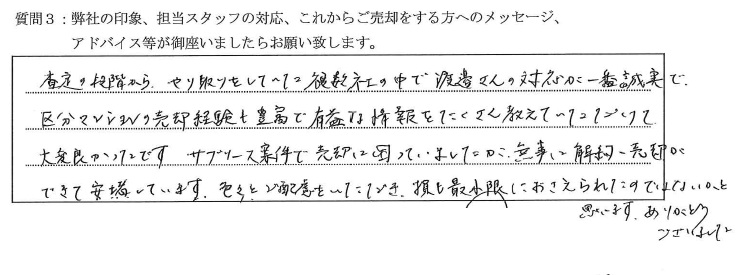 質問3：弊社の印象、担当スタッフの対応、これからご売却をする方へのメッセージ、
アドバイス等が御座いましたらお願い致します。
査定の段階から、やり取りをしていた複数社の中で渡邉さんの対応が一番誠実で、
区分マンションの売却経験も豊富で有益な情報をたくさん教えていただけて
大変良かったです。サブリース案件で売却に困っていましたが、無事に解約、売却が
できて安堵しています。色々とご配慮をいただき、損も最小限におさえられたのではないかと
思います。ありがとう
ございました